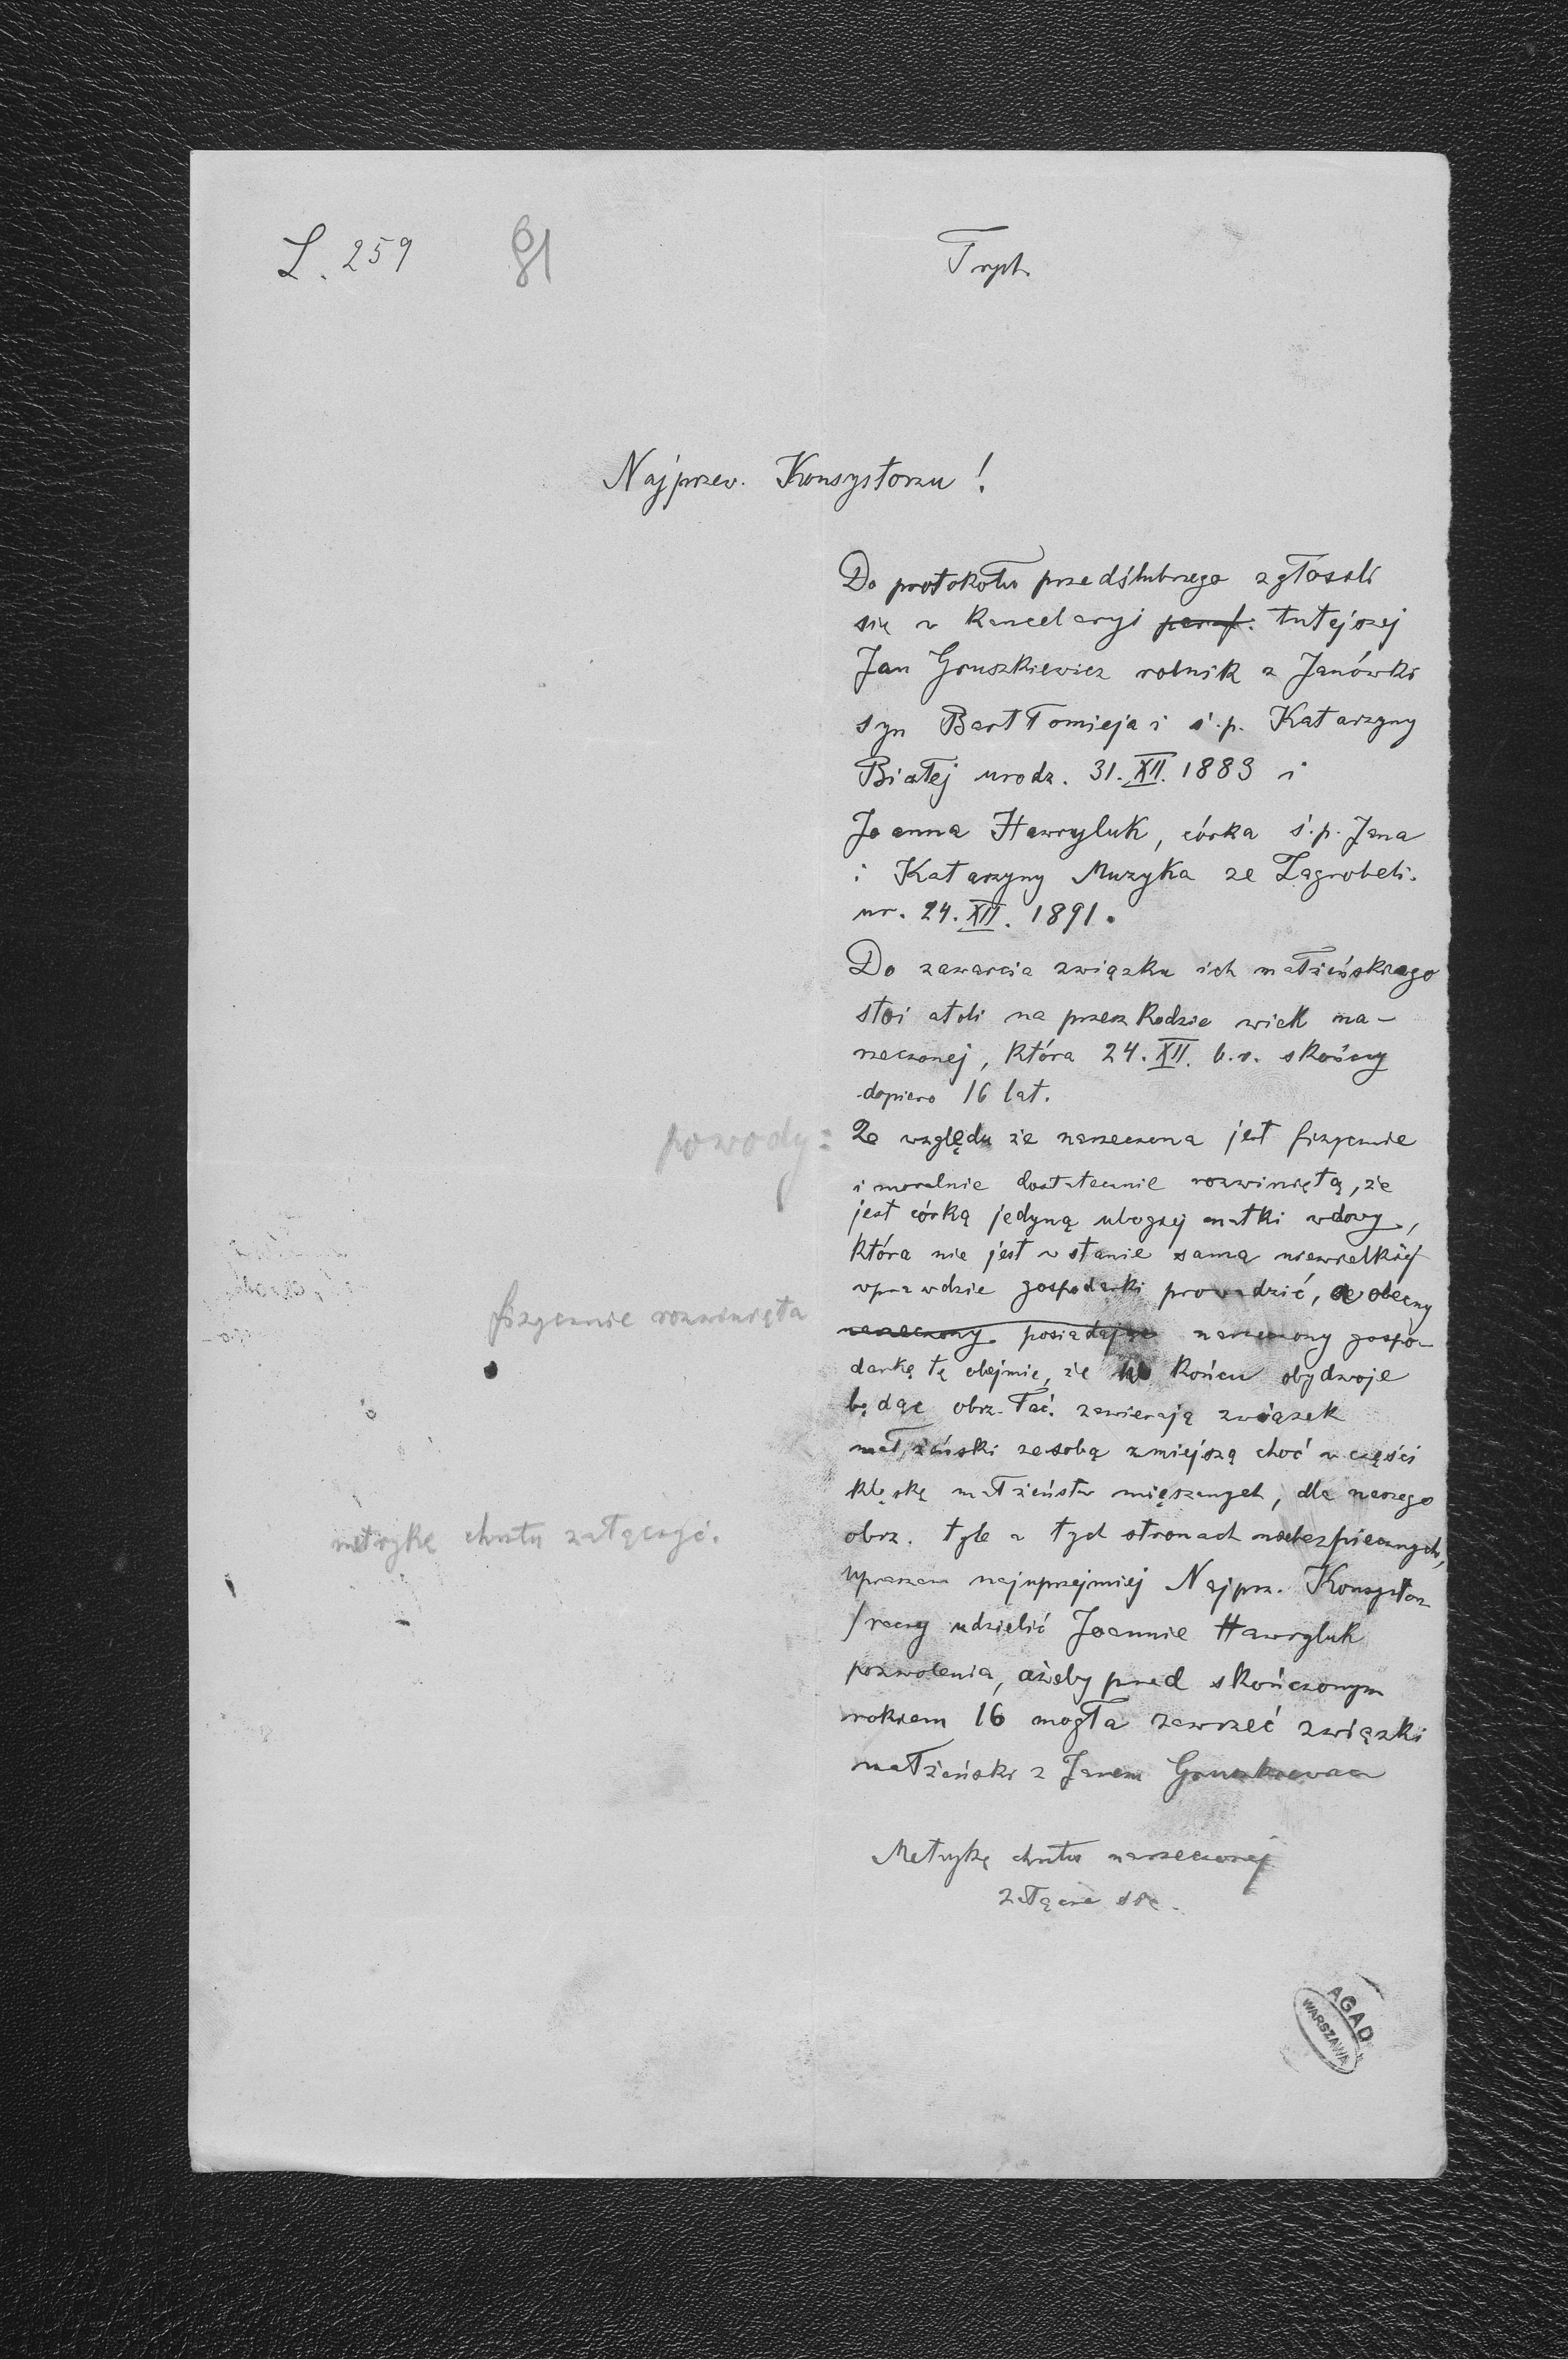 L. 259
81
Tryb.
Najprzew. Konsystorzu!
Do protokołu przedślubnego zgłosili
się w kancelaryi paraf. tutejszej
Jan Gruszkiewicz rolnik z Janówki
syn Bartłomieja i ś.p. Katarzyny
Białej urodz. 31. XII. 1883 i
Joanna Hawryluk, córka ś.p. Jana
i Katarzyny Muzyka ze Zagrobeli.
ur. 24. XII. 1891.
Do zawarcia związku ich małżeńskiego
stoi atoli na przeszkodzie wiek na-
rzeczonej, która 24. XII. b.r. skończy
dopiero 16 lat.
powody:
Ze względu że narzeczona jest fizycznie
i moralnie dostatecznie rozwiniętą, że
jest córką jedyną ubogiej matki wdowy,
która nie jest w stanie sama niewielkiej
wprawdzie gospodarki prowadzić, a obecny
fizycznie rozwinięta
narzeczony posiadając narzeczony gospo-
darkę tę obejmie, że w końcu obydwoje
będąc obrz. łać. zawierają związek
małżeński ze sobą zmiejszą choć w części
klęskę małżeństw mięszanych, dla naszego
obrz. tyle w tych stronach niebezpiecznych,
metrykę chrztu załączyć.
upraszam najuprzejmiej Najprz. Konsystorz
raczy udzielić Joannie Hawryluk
pozwolenia, ażeby przed skończonym
rokiem 16 mogła zawrzeć związki
małżeński z Janem Gruszkiewicz
Metrykę chrztu narzeczonej
załącza się.
AGAD
WARSZAWA